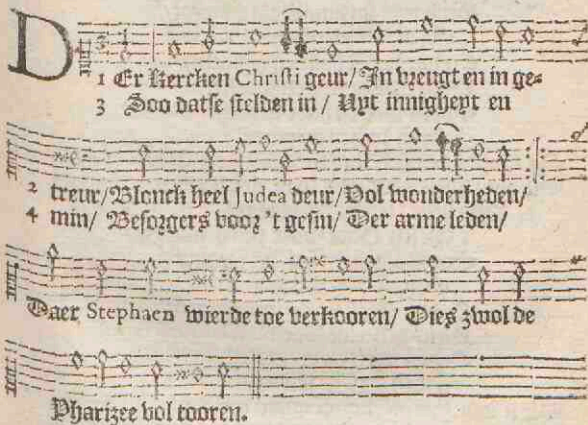 D
1 Er Kercken Christi geur/ In vreugt en in ge-
3 Soo datse stelden in / Uyt innigheyt en
2 treur/Blonck heel Judea deur/Vol wonderheden/
4 min/ Besorgers voor 't gesin/ Der arme leden/
Daer Stephaen wierde toe verkooren/ Dies zwol de
Pharizee vol tooren.